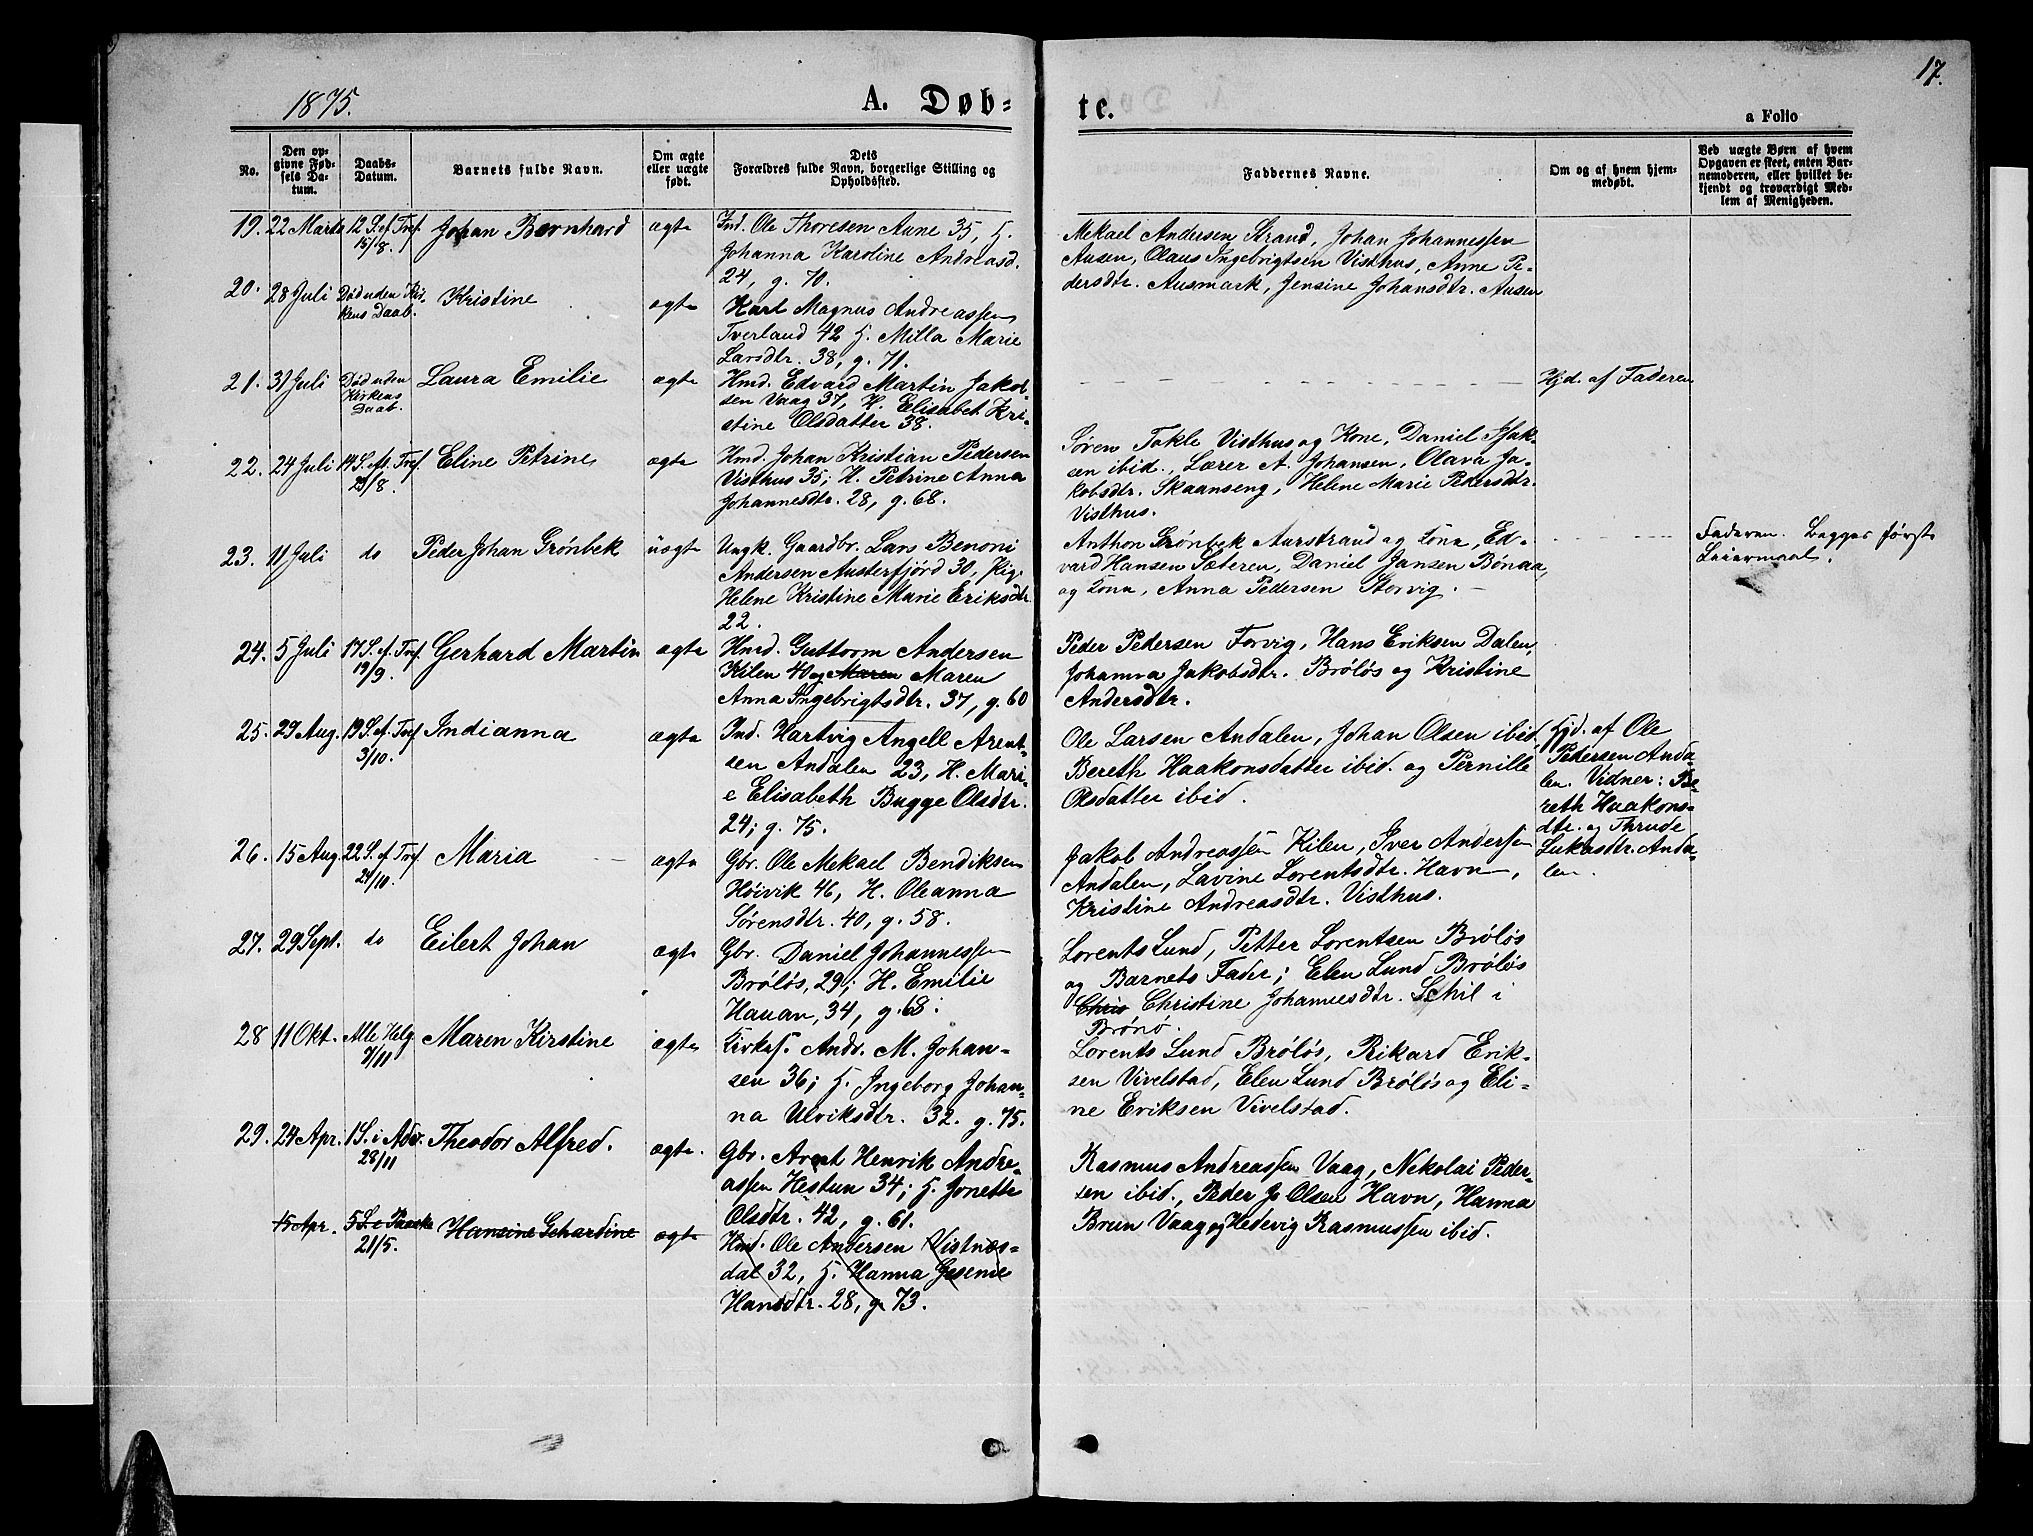 1875.
A. Døb=
te.
17.
a Folio
No.
Den op=
givne Fød=
sels Da=
tum.
Daabs=
Datum.
Barnets fulde Navn.
Om ægte
eller uægte
født.
Dets
Forældres fulde Navn, borgerlige Stilling og
Opholdssted.
Faddernes Navne.
Om og af hvem hjem=
medøbt.
Ved uægte Børn af hvem
Opgaven er skeet, enten Bar=
nemoderen, eller hvilket be=
kjendt og troværdigt Med=
lem af Menigheden.
19. 22 Marts 12 S. ef. Tref. 15/8. Johan Bernhard ægte
Ind. Ole Thoresen Aune 35, H.
Johanna Karoline Andreasd.
24, g. 70.
Mekael Andersen Strand, Johan Johannessen
Ausen, Olaus Ingebrigtsen Visthus, Anne Pe-
dersdtr. Ausmark, Jensine Johansdtr. Ausen
20. 28 Juli Død uden Kir-
kens Daab. Kristine ægte
Karl Magnus Andreassen
Tverland 42 H. Milla Marie
Larsdtr. 38, g. 71.
21. 31 Juli Død uden
Kirkens
Daab. Laura Emilie ægte
Hmd. Edvard Martin Jakob-
sen Vaag 37, H. Elisabet Kri-
stine Olsdatter 38.
Hjd. af Faderen
22. 24 Juli 14 S. ef. Tref. 29/8. Eline Petrine ægte
Hmd. Johan Kristian Pedersen
Visthus 35; H. Petrine Anna
Johannesdtr. 28, g. 68.
Søren Tokle Visthus og Kone, Daniel Isak-
sen ibid., Lærer A. Johansen, Olava Ja-
kobsdtr. Skaanseng, Helene Marie Petersdtr.
Visthus.
23. 11 Juli do Peder Johan Grönbek uægte
Ungk. Gaardbr. Lars Benoni
Andersen Austerfjord 30, Pig.
Helene Kristine Marie Eriksdtr.
22.
Anthon Grönbek Aurstrand og Kone, Ed-
vard Hansen Sæteren, Daniel Jansen Bönaa,
og Kone, Anna Pedersen Storvig.
Faderen. Begges første
Leiermaal.
24. 5 Juli 17 S. ef. Tref. 19/9. Gerhard Martin ægte
Hmd. Guttorm Andersen
Kilen 40 og Maren Maren
Anna Ingebrigtsdtr. 37, g. 60
Peder Pedersen Forvig, Hans Eriksen Dalen,
Johanna Jakobsdtr. Brölös og Kristine
Andersdtr.
25. 29 Aug. 19 S. ef. Tref 3/10. Indianna ægte
Ind. Hartvig Angell Arent-
sen Andalen 23, H. Mari-
e Elisabeth Bugge Olsdtr.
24; g. 75.
Ole Larsen Andalen, Johan Olsen ibid.
Bereth Haakonsdatter ibid. og Pernille
Olsdatter ibid.
Hjd. af Ole
Pedersen Anda-
len. Vidner: Be-
reth Haakons-
dtr. og Thrude
Lukasdtr. Anda-
len.
26. 15 Aug. 22 S. ef. Tref 24/10. Maria ægte
Gbr. Ole Mekael Bendiksen
Höivik 46, H. Oleanna
Sörensdtr. 40, g. 58.
Jakob Andreassen Kilen, Iver Andersen
Andalen, Lavine Lorentsdtr. Havn,
Kristine Andreasdtr. Visthus.
27. 29 Sept. do Eilert Johan ægte
Gbr. Daniel Johannessen
Brölös, 29; H. Emilie
Hauan, 34, g. 68.
Lorents Lund, Petter Lorentsen Brölös
og Barnets Fader; Elen Lund Brölös
Chris Christine Johannesdtr. Schil i
Brönö.
28 11 Okt. Alle Helg. 7/11 Maren Kirstine ægte
Kirkes. Andr. M. Johan-
sen 36; H. Ingeborg Johan-
na Ulviksdtr. 32. g. 75.
Lorents Lund Brölös, Rikard Erik-
sen Vivelstad, Elen Lund Brölös og Eli-
ne Eriksen Vivelstad.
29. 24 Apr. 1 S. i Adv. 28/11 Theodor Alfred. ægte.
Gbr. Arent Henrik Andre-
assen Hestun 34; H. Jonette
Olsdtr. 42, g. 61.
Rasmus Andreassen Vaag, Nekolai Peder-
sen ibid., Peder Jo Olsen Havn, Hanna
Brun Vaag og Hedevig Rasmussen ibid.
15 Apr. 5 S. e Paaske 21/5. Hansine Gehardine ægte
Hmd. Ole Andersen Vistnes-
dal 32, H. Hanna Gesine
Hansdtr. 28, g. 73.